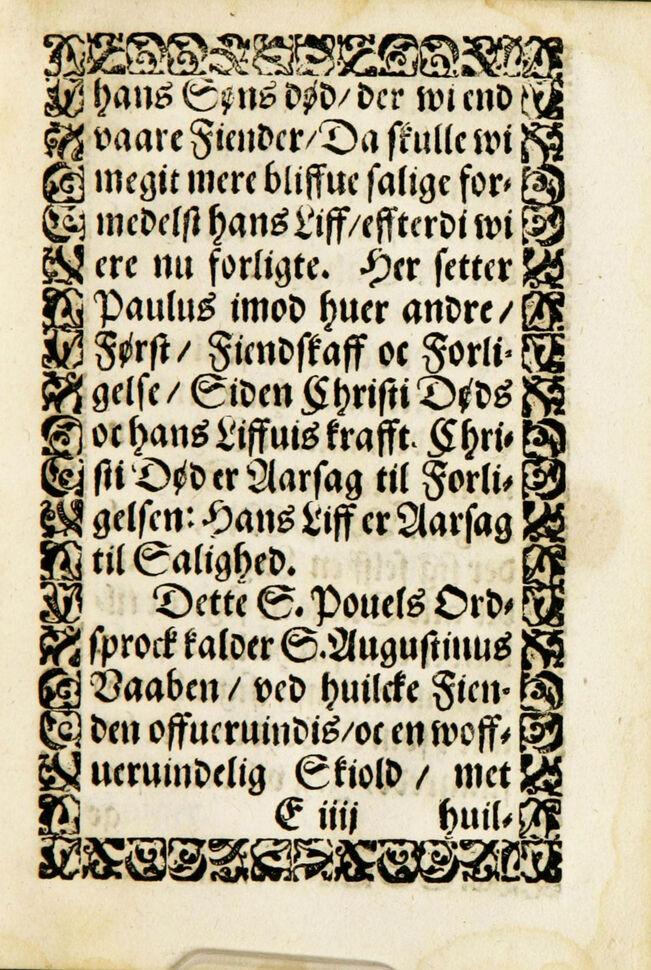 hans Søns død/ der wi end
vaare Fiender/Da skulle wi
megit mere bliffue salige for-
medelst hans Liff/effterdi wi
ere nu forligte. Her setter
Paulus imod huer andre/
Først/ Fiendskaff oc Forli-
gelse/ Siden Christi Døds
oc hans Liffuis krafft. Chri-
sti Død er Aarsag til Forli-
gelsen: Hans Liff er Aarsag
til Salighed.
Dette S. Pouels Ord-
sprock kalder S. Augustinus
Vaaben/ ved huilcke Fien-
den offueruindis/oc en woff-
ueruindelig Skiold/ met
E iiij huil-